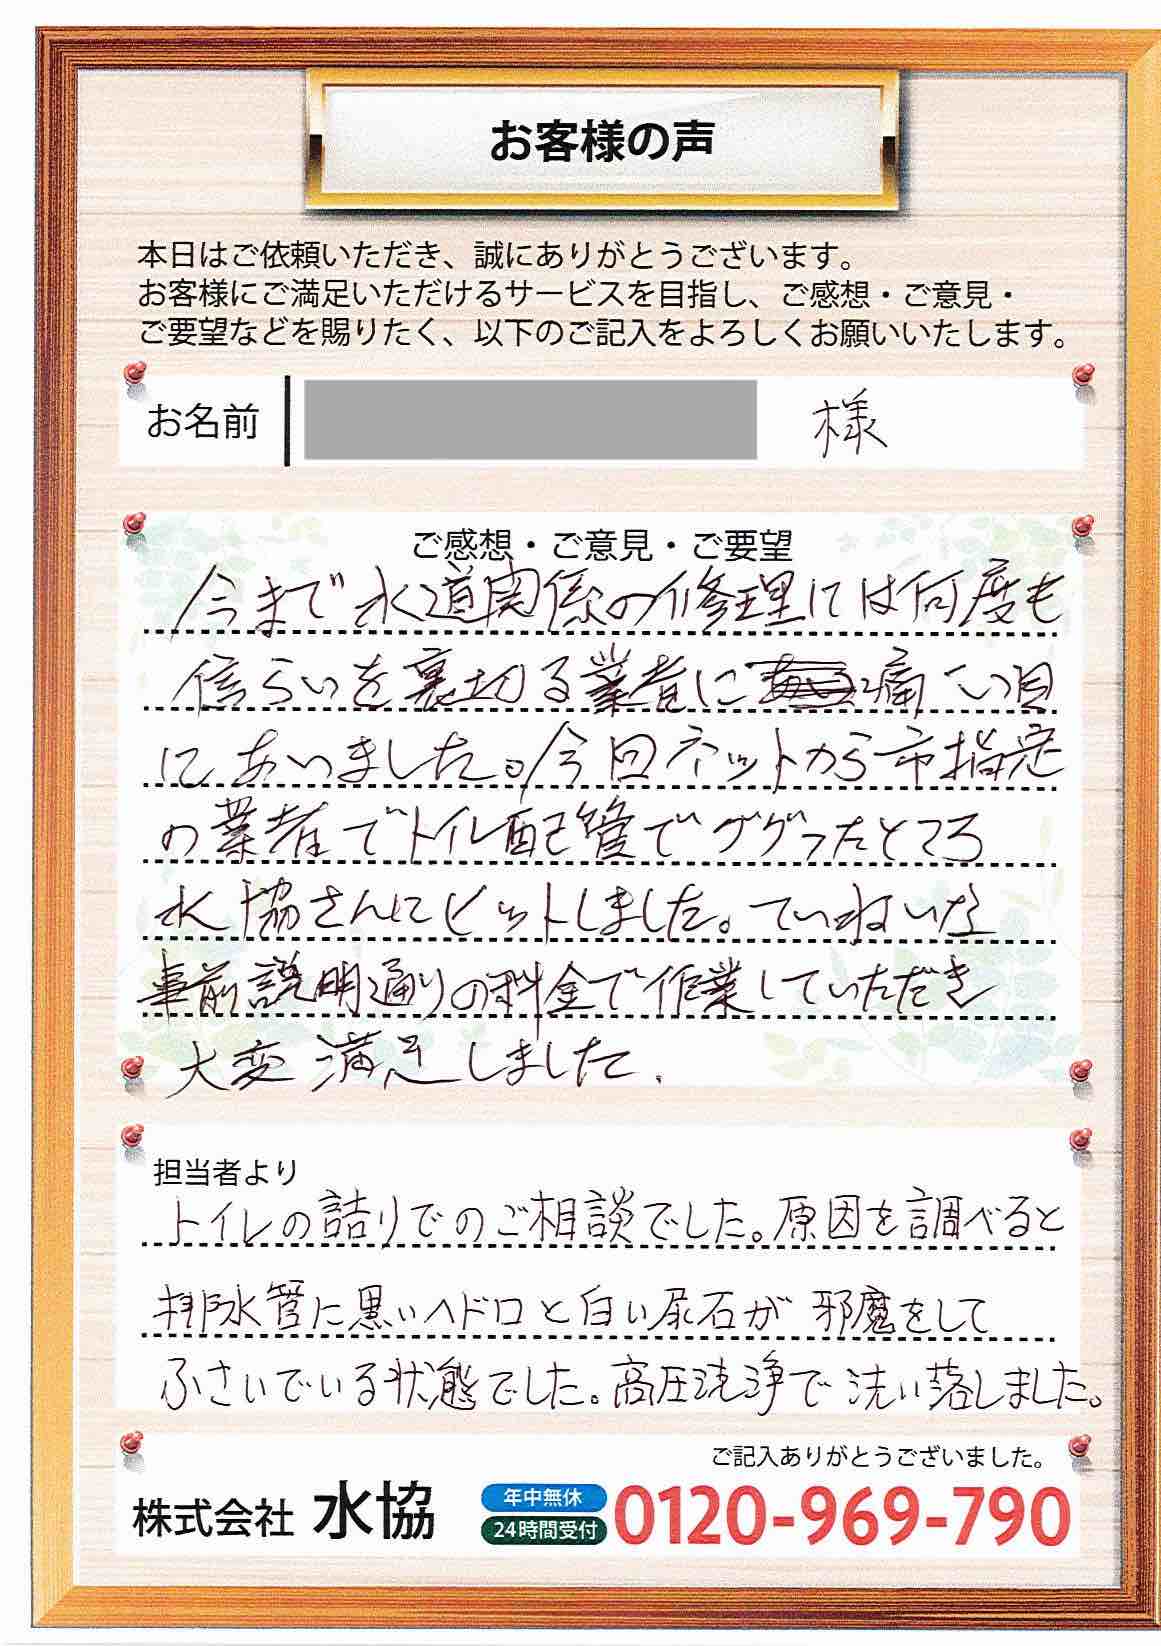 お客様の声
本日はご依頼いただき、誠にありがとうございます。
お客様にご満足いただけるサービスを目指し、ご感想・ご意見・
ご要望などを賜りたく、以下のご記入をよろしくお願いいたします。
お名前 様
ご感想・ご意見・ご要望
今まで水道関係の修理には何度も
信らいを裏切る業者に痛い目
にあいました。今回ネットから市指定
の業者でトイレ配管でググったところ
水協さんにヒットしました。ていねいな
事前説明通りの料金で作業していただき
大変満足しました.
担当者より
トイレの詰りでのご相談でした。原因を調べると
排水管に黒いヘドロと白い尿石が邪魔をして
ふさいでいる状態でした。高圧洗浄で洗い落しました。
ご記入ありがとうございました。
株式会社 水協 年中無休 24時間受付 0120-969-790